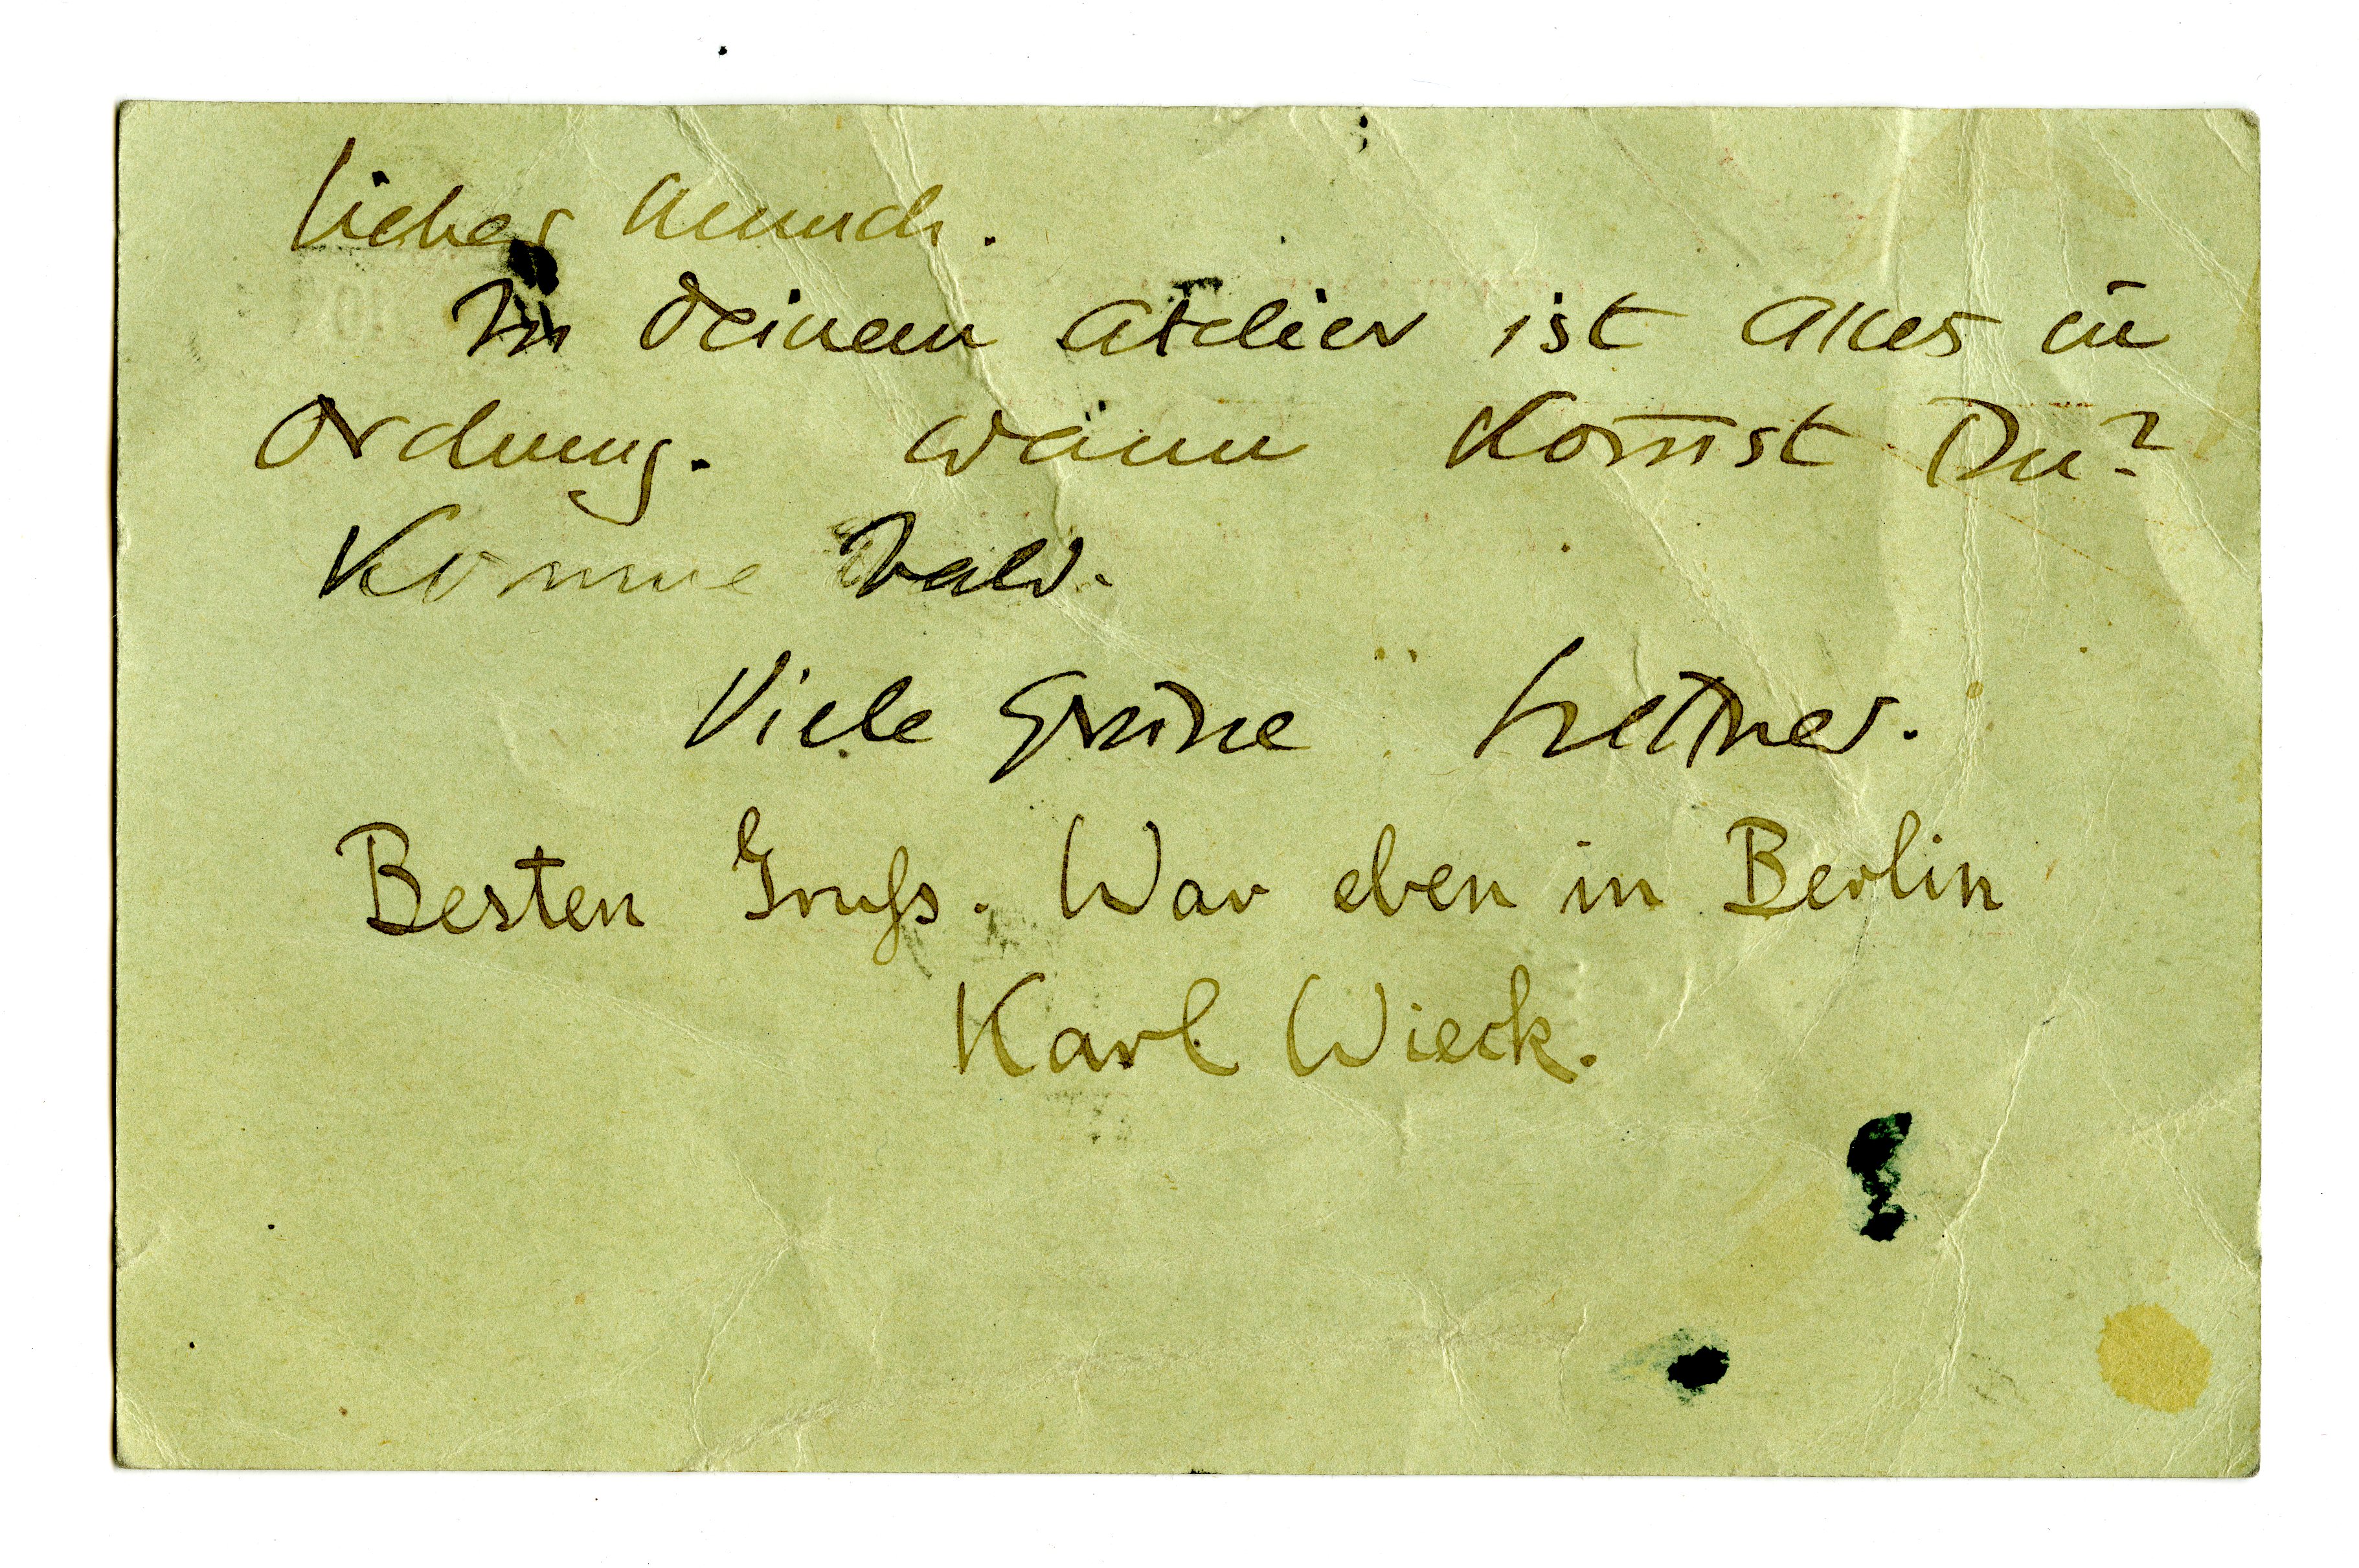 Lieber Munch.
In deinem Atelier ist Alles in
Ordnung. Wann Kom̅st Du?
Komme bald.
Viele Grüsse Hettner.
Besten Gruss. War eben in Berlin
Karl Wieck.